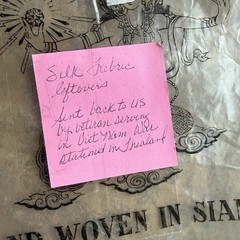 Silk Fabric
leftovers
Sent back to US
by veteran serving
in Viet Nam War
stationed in Thailand
ND WOVEN IN SIAM